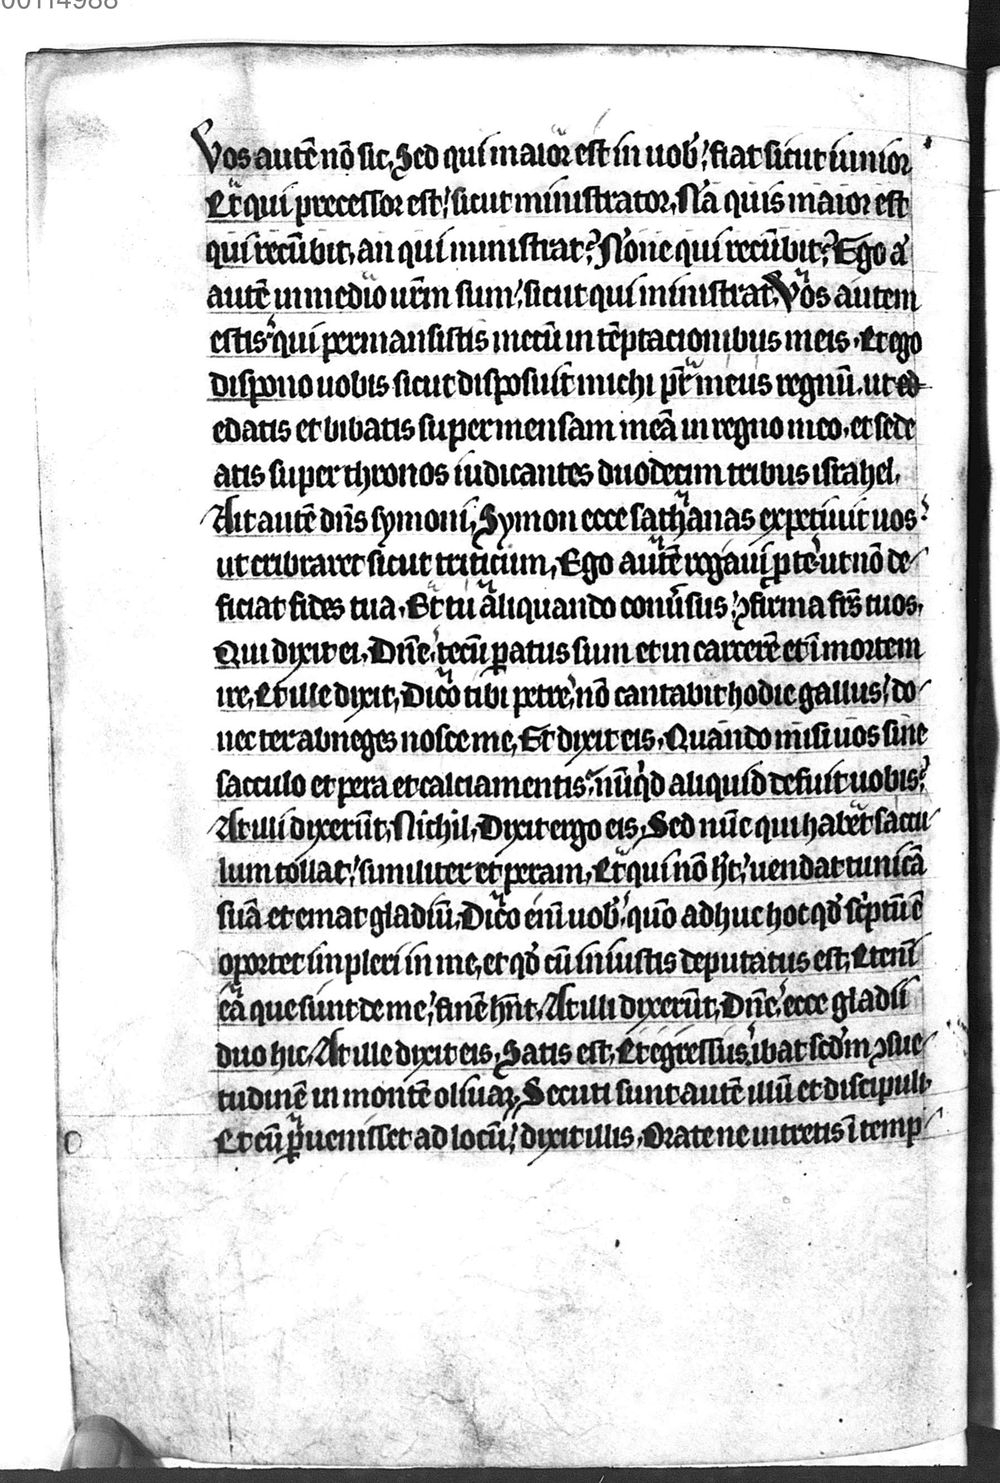 00114988
Vos autē nō sic, Sed qui maior est in uob᷒, fiat sicut iunior
Et qui precessor est, sicut ministrator, Nā quis maior est
qui recūbit, an qui ministrat? Nōne qui recūbit? Ego ā
autē in medio ur̄m sum, sicut qui ministrat, Vos autem
estis qui permansistis mecū in tēptacionibus meis. Et ego
dispono uobis sicut disposuit michi pr̄ meus regnū. ut ed
edatis et bibatis super mensam meā in regno meo, et sede
atis super thronos iudicantes duodecim tribus israhel,
Ait autē dn̄s symoni, Symon ecce sathanas expetiuit uos
ut cribraret sicut triticum, Ego autē rogaui p te ut nō de
ficiat fides tua. Et tu aliquando conūsus ꝯfirma frs̄ tuos,
Qui dixit ei, Dn̄e, tecū paratus sum et in carcerē et ī mortem
ire, Et ille dixit, Dico tibi petre, nō cantabit hodie gallus, do
nec ter abneges nosce me, Et dixit eis, Quando misi uos sine
sacculo et pera et calciamentis, nūqd aliquid defuit uobis?
At illi dixerūt, Nichil, Dixit ergo eis, Sed nūc qui habet saccu
lum tollat, similiter et peram, Et qui nō ht̄, uendat tunicā
suā et emat gladiū, Dico enī uob᷒, quō adhuc hoc qd̄ sc̄ptū ē
oportet impleri in me, et qd̄ cū iniustis deputatus est, Etenī
ea que sunt de me, finē hn̄t, At illi dixerūt, Dn̄e, ecce gladii
duo hic, At ille dixit eis, Satis est, Et egressus, ibat sed̄m ꝯsue
tudinē in montē oliuaꝝ, Secuti sunt autē illū et discipuli,
Et cū ꝑuenisset ad locū, dixit illis, Orate ne intretis ī temp